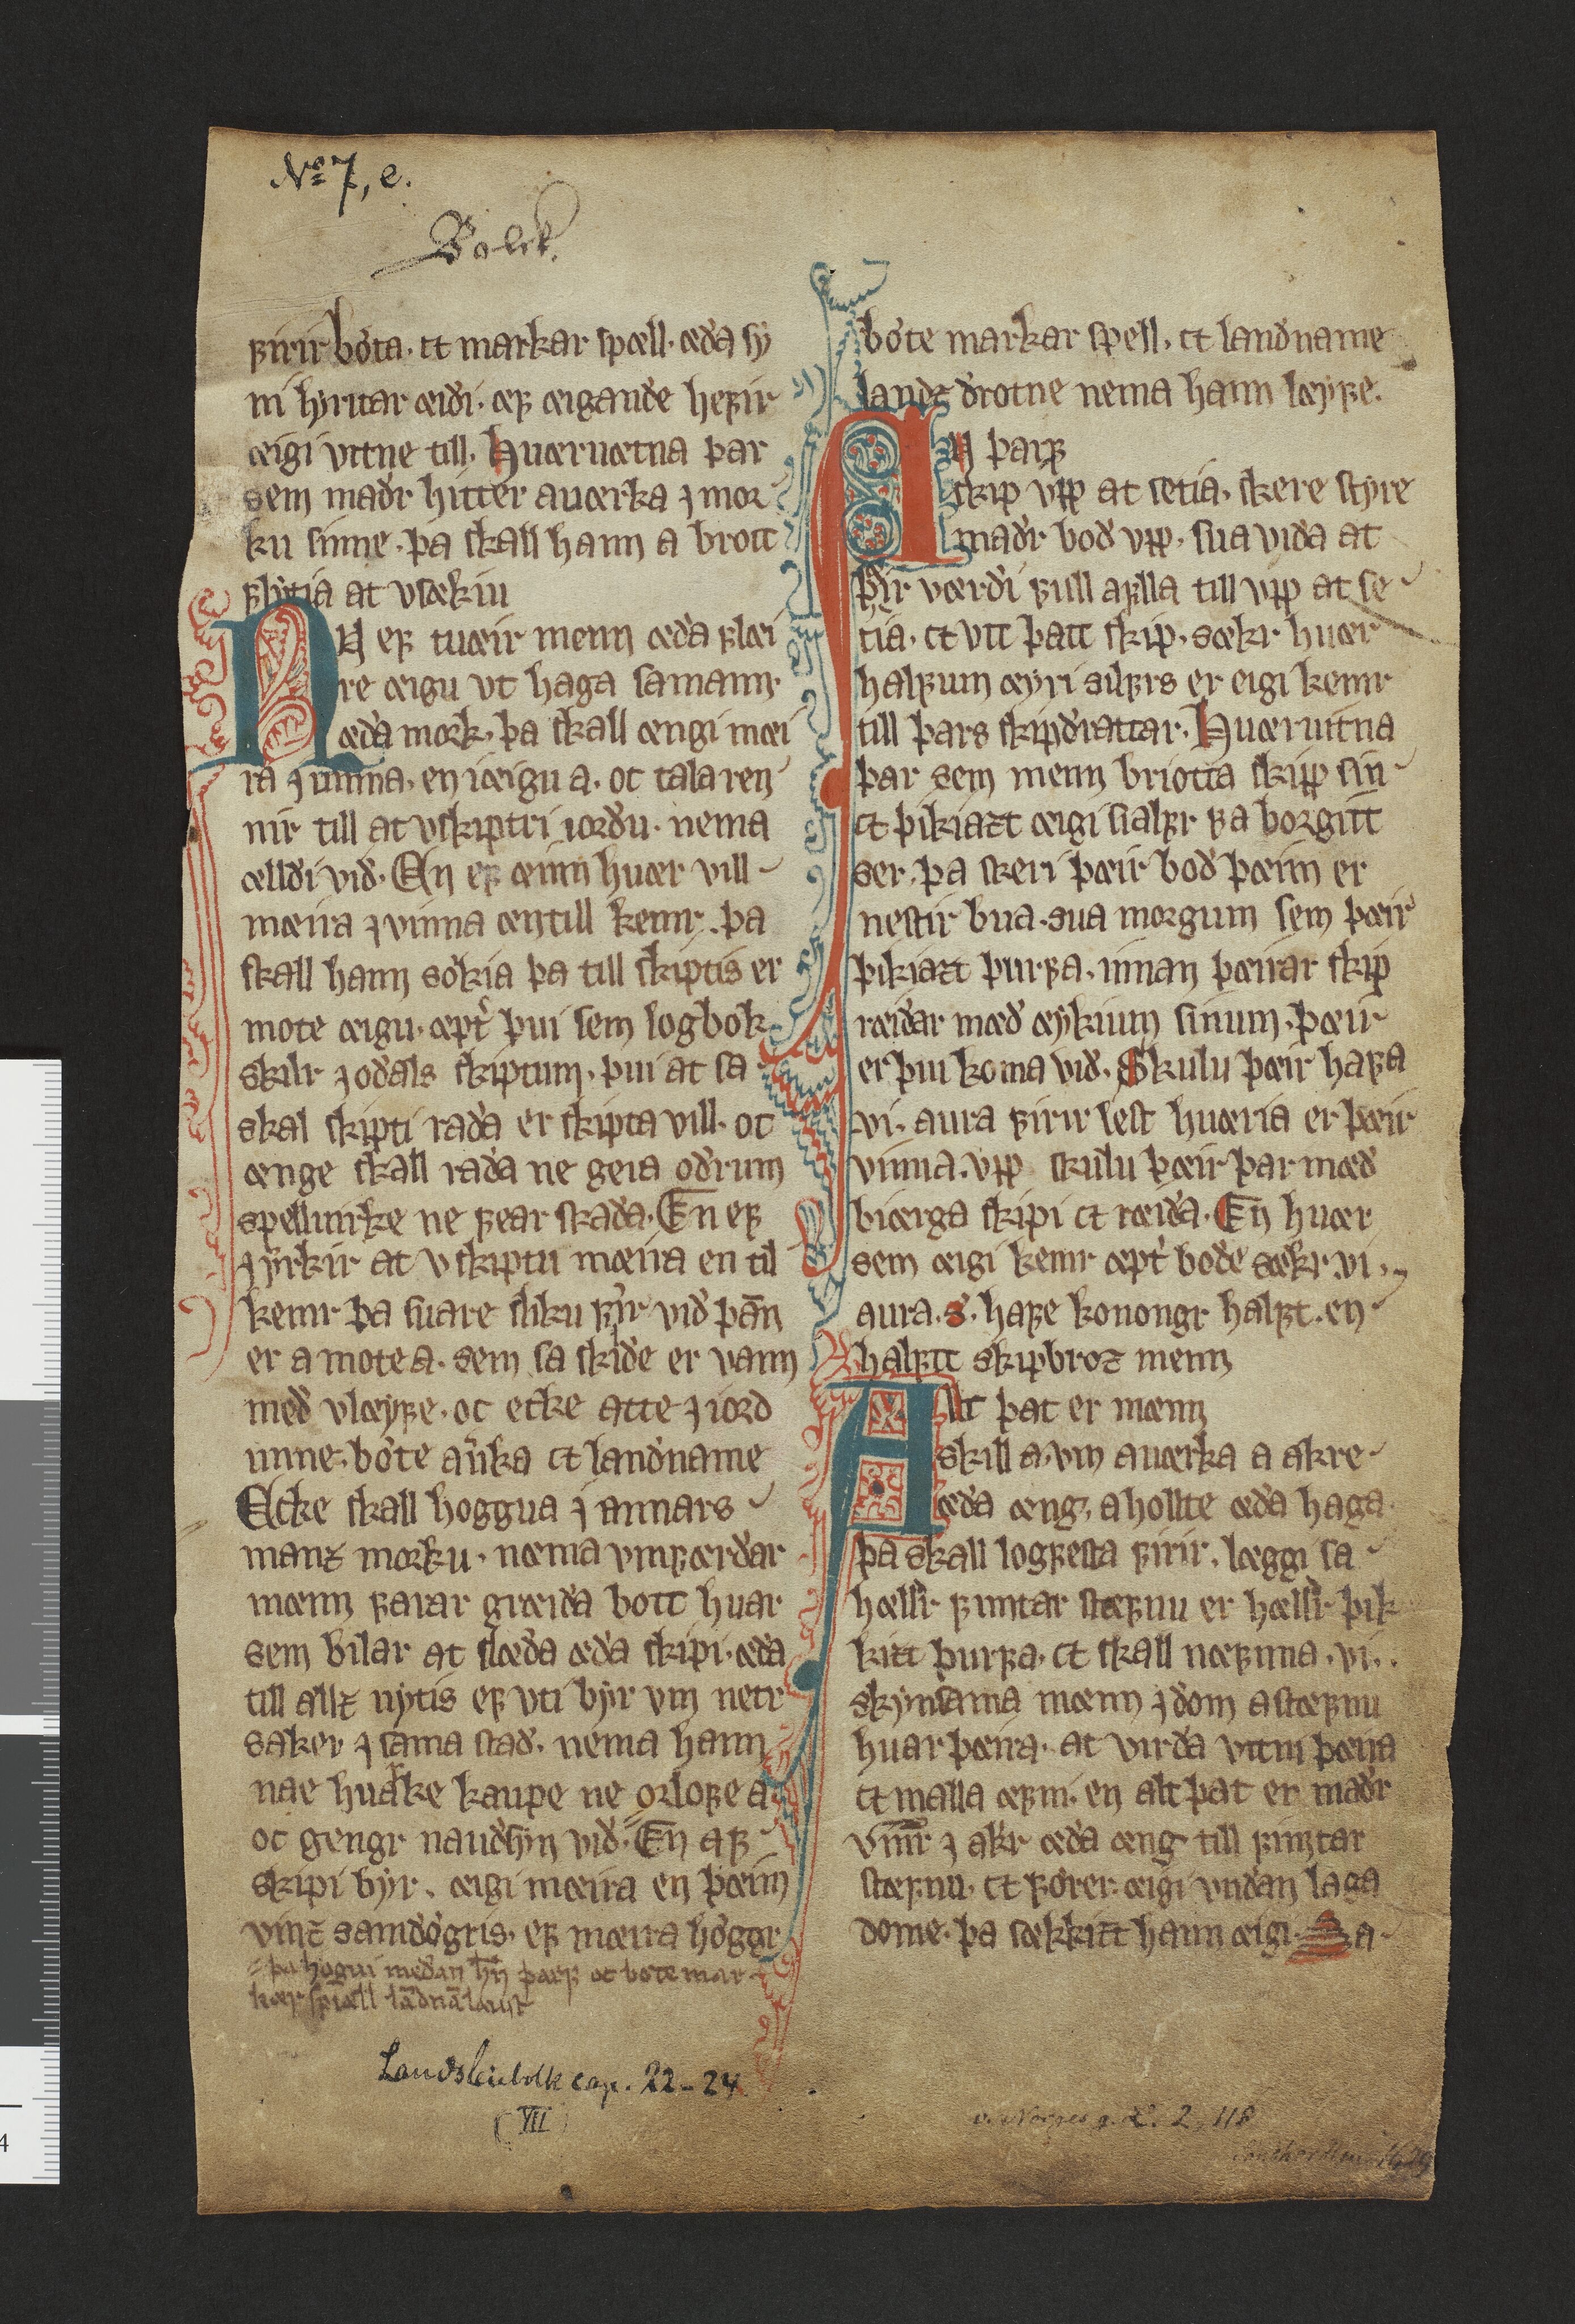 No 7, e.
Bolck.
ꝼirir bota. ct markar spæll. æða sy
ni hyrttar æiði. æꝼ æigande heꝼir
æigi vitne till. Huæruætna þar
sem maðr hitter auærka j mor
ku sinne. þa skall hann a brott
ꝼlytia at vsækiu
NV eꝼ tuæir menn æða ꝼlæi
re æigu vt haga samann
æða mork. þa skall ængi mæi
ra j uinna. en i æigu a. oc tala ren
nir till at vskiptri iorðu. nema
ælldi við. En eꝼ æinn huær vill
mæira j vinna æn till kemr. þa
skall hann sokia þa till skiptis er
mote æigu. æpt þui sem logbok
skilr j oðals skiptum. þui at sa
skal skipti raða er skipta vill. oc
ænge skall raða ne gera oðrum
spelluirke ne ꝼear skaða. En eꝼ
j yrkir at vskiptu mæira en til
kemr þa suare sliku ꝼir við þān
er a mote a. sem sa skiðe er vann
með vlæyꝼe. oc ecke atte j iord
unne. bote auka ct landname
Ecke skall hoggua j annars
manz morku. næma vmꝼærðar
mænn ꝼarar græiða bott huar
sem bilar at slæða æða skipi. æða
till allz nytis eꝼ vti byr vm netr
saker j sama stað. nema hann
nae huarke kaupe ne orloꝼe a
oc gengr nauðsyn við. En aꝼ
skipi byr. æigi mæira en þæim
vinz samdogris. eꝼ mæira hoggr
þa hogui meðan hn þarꝼ oc bote mar
kar spiæll lādnālaust
Landsleiebolk cap. 22-24
(VII)
bote markar spell. ct landname
landz drotne nema hann læyꝼe.
NV þarꝼ
skip vpp at setia. skere styre
maðr boð vpp. sua viða at
þir værði ꝼull aꝼlla till vpp at se
tia. ct vtt þatt skip. sækr huær
halꝼum æyri silꝼrs er eigi kemr
till þars skipdrattar. Huæruitna
þar sem menn briotta skipp sin
ct þikiazt æigi sialꝼr ꝼa borgitt
ser. þa skeri þæir boð þæim er
nestir bua. sua morgum sem þæir
þikiazt þurꝼa. innan þæirar skip
ræiðar mæð æykium sinum. þæir
er þui koma við. Skulu þæir haꝼa
vi. aura ꝼirir lest huæria er þæir
vinna. vpp skulu þæir þar mæð
biærga skipi ct ræiða. En huær
sem æigi kemr æpt boðe sækr. vi.
aura. s. haꝼe konongr halꝼt. en
halꝼtt skipbroz menn
Alt þat er mænn
skill a. vm auærka a akre
æða æng. a hollte æða haga.
þa skall logꝼesta ꝼirir. læggi sa
hælldr ꝼimtar stæꝼnu er hælldr þik
kitt þurꝼa. ct skall næꝼnna. vi.
skynsama mænn j dom a stæꝼnu
huar þæira. at virða vitni þæira
ct malla æꝼni. en alt þat er maðr
vinnr j akr æða æng till ꝼimtar
stæꝼnu. ct ꝼorer æigi vndan laga
dome. þa sækkizt hann æigi. Sa
v. Norges g. L. 2, 118